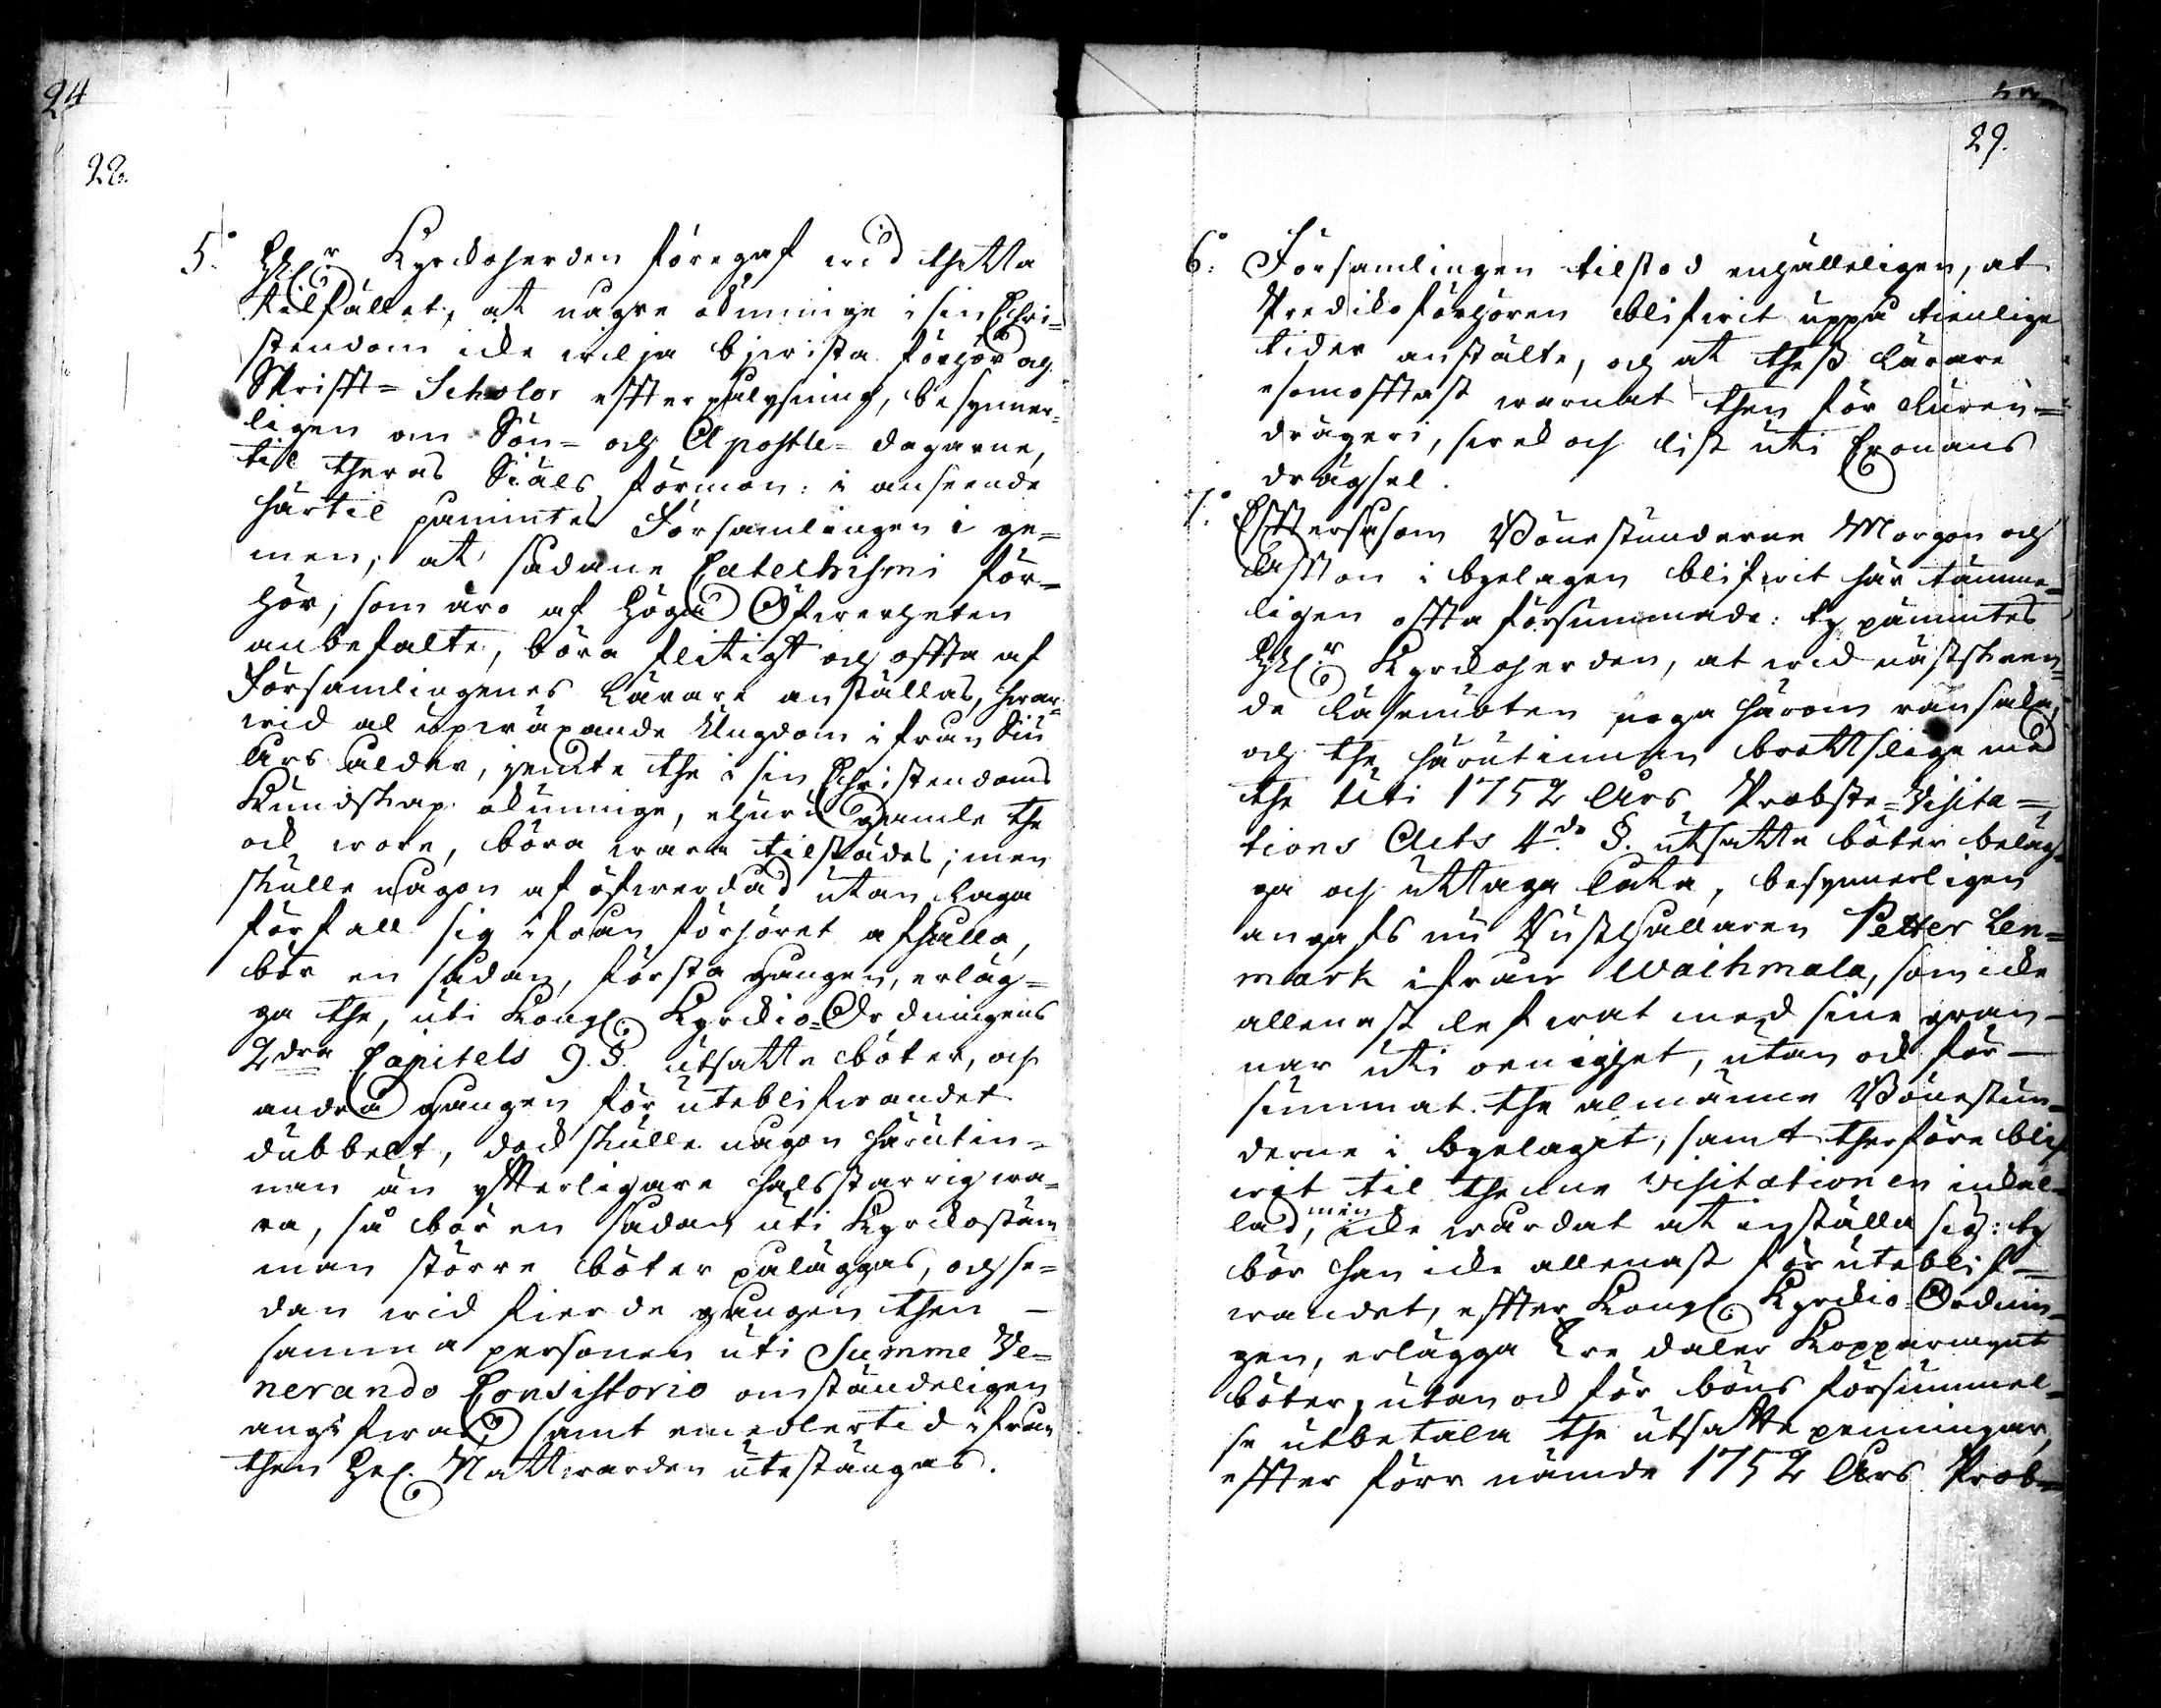 24
22.
5.° H.r Kyrckoherden föregaf wid thetta
tilfället, at någre okunnige i sin Chri=
stendom icke wilja bjwista förhör och
Skrifft=Scholor effter pålysning, besynner=
ligen om Sön= och Apostle=dagarne,
til theras Siäls förmon: i anseende
härtil påmintes Församlingen i ge=
men, at sådane Catechismi för=
hör, som äro af Höga Öfwerheten
anbefalte, böra flitigt och offta af
Församlingenes Lärare anställas, hwar=
wid al upwäxande Ungdom ifrån Siu
Års ålder, jemte the i sin Christendoms
Kundskap okunnige, ehuru gamle the
ock wore, böra wara tilstädes; men
skulle någon af öfwerdåd utan laga
förfall sig ifrån förhöret afhålla,
bör en sådan, första gången, erläg=
ga the, uti Kongl. Kyrckio=Ordningens
2dra Capitels 9.§. utsatte böter, och
andra gången för uteblifwandet
dubbelt, dock skulle någon härutin=
nan än ytterligare halsstarrig wa=
ra, så bör en sådan uti Kyrckostäm
man större böter påläggas, och se=
dan wid fierde gången then
samma personen uti Summe Ve=
nerando Consistorio omständeligen
angifwas samt emedlertid ifrån
then Hel. Nattwarden utestängas.
29.
6.° Församlingen tilstod enhälleligen, at
Predikoförhören blifwit uppå tienlige
tider anstälte, och at theß Lärare
som offtast warnat then för Luren=
drägeri, swek och list uti Cronans
drägsel.
7.° Efftersåsom Bönestunderne Morgon och
Affton i byelagen blifwit här tämme=
ligen offta försummade: ty påmintes
H.r Kyrckoherden, at wid nästskeen=
de Läsemöten noga härom ransaka,
och the härutinnan brottslige med
the uti 1752 Års Probste=Visita=
tions Acts 4.de §. utsatte böter beläg=
ga och uttaga låta, besynnerligen
angafs nu Husthållaren Petter Len=
mark ifrån Waihmala, som icke
allenast lefwat med sine gran=
nar uti oenighet, utan ock för=
summat the almänne Bönestun=
derne i byelaget, samt therföre blif
wit til thenne Visitationen inkal=
lad, men icke wårdat at inställa sig: ty
bör han icke allenast för uteblif=
wandet, effter Kongl. Kyrckio=Ordnin=
gen, erlägga Tre daler Kopparmynt
böter, utan ock för böns försummel=
se utbetala the utsatte penningar,
effter förr nämde 1752 Års Prob=